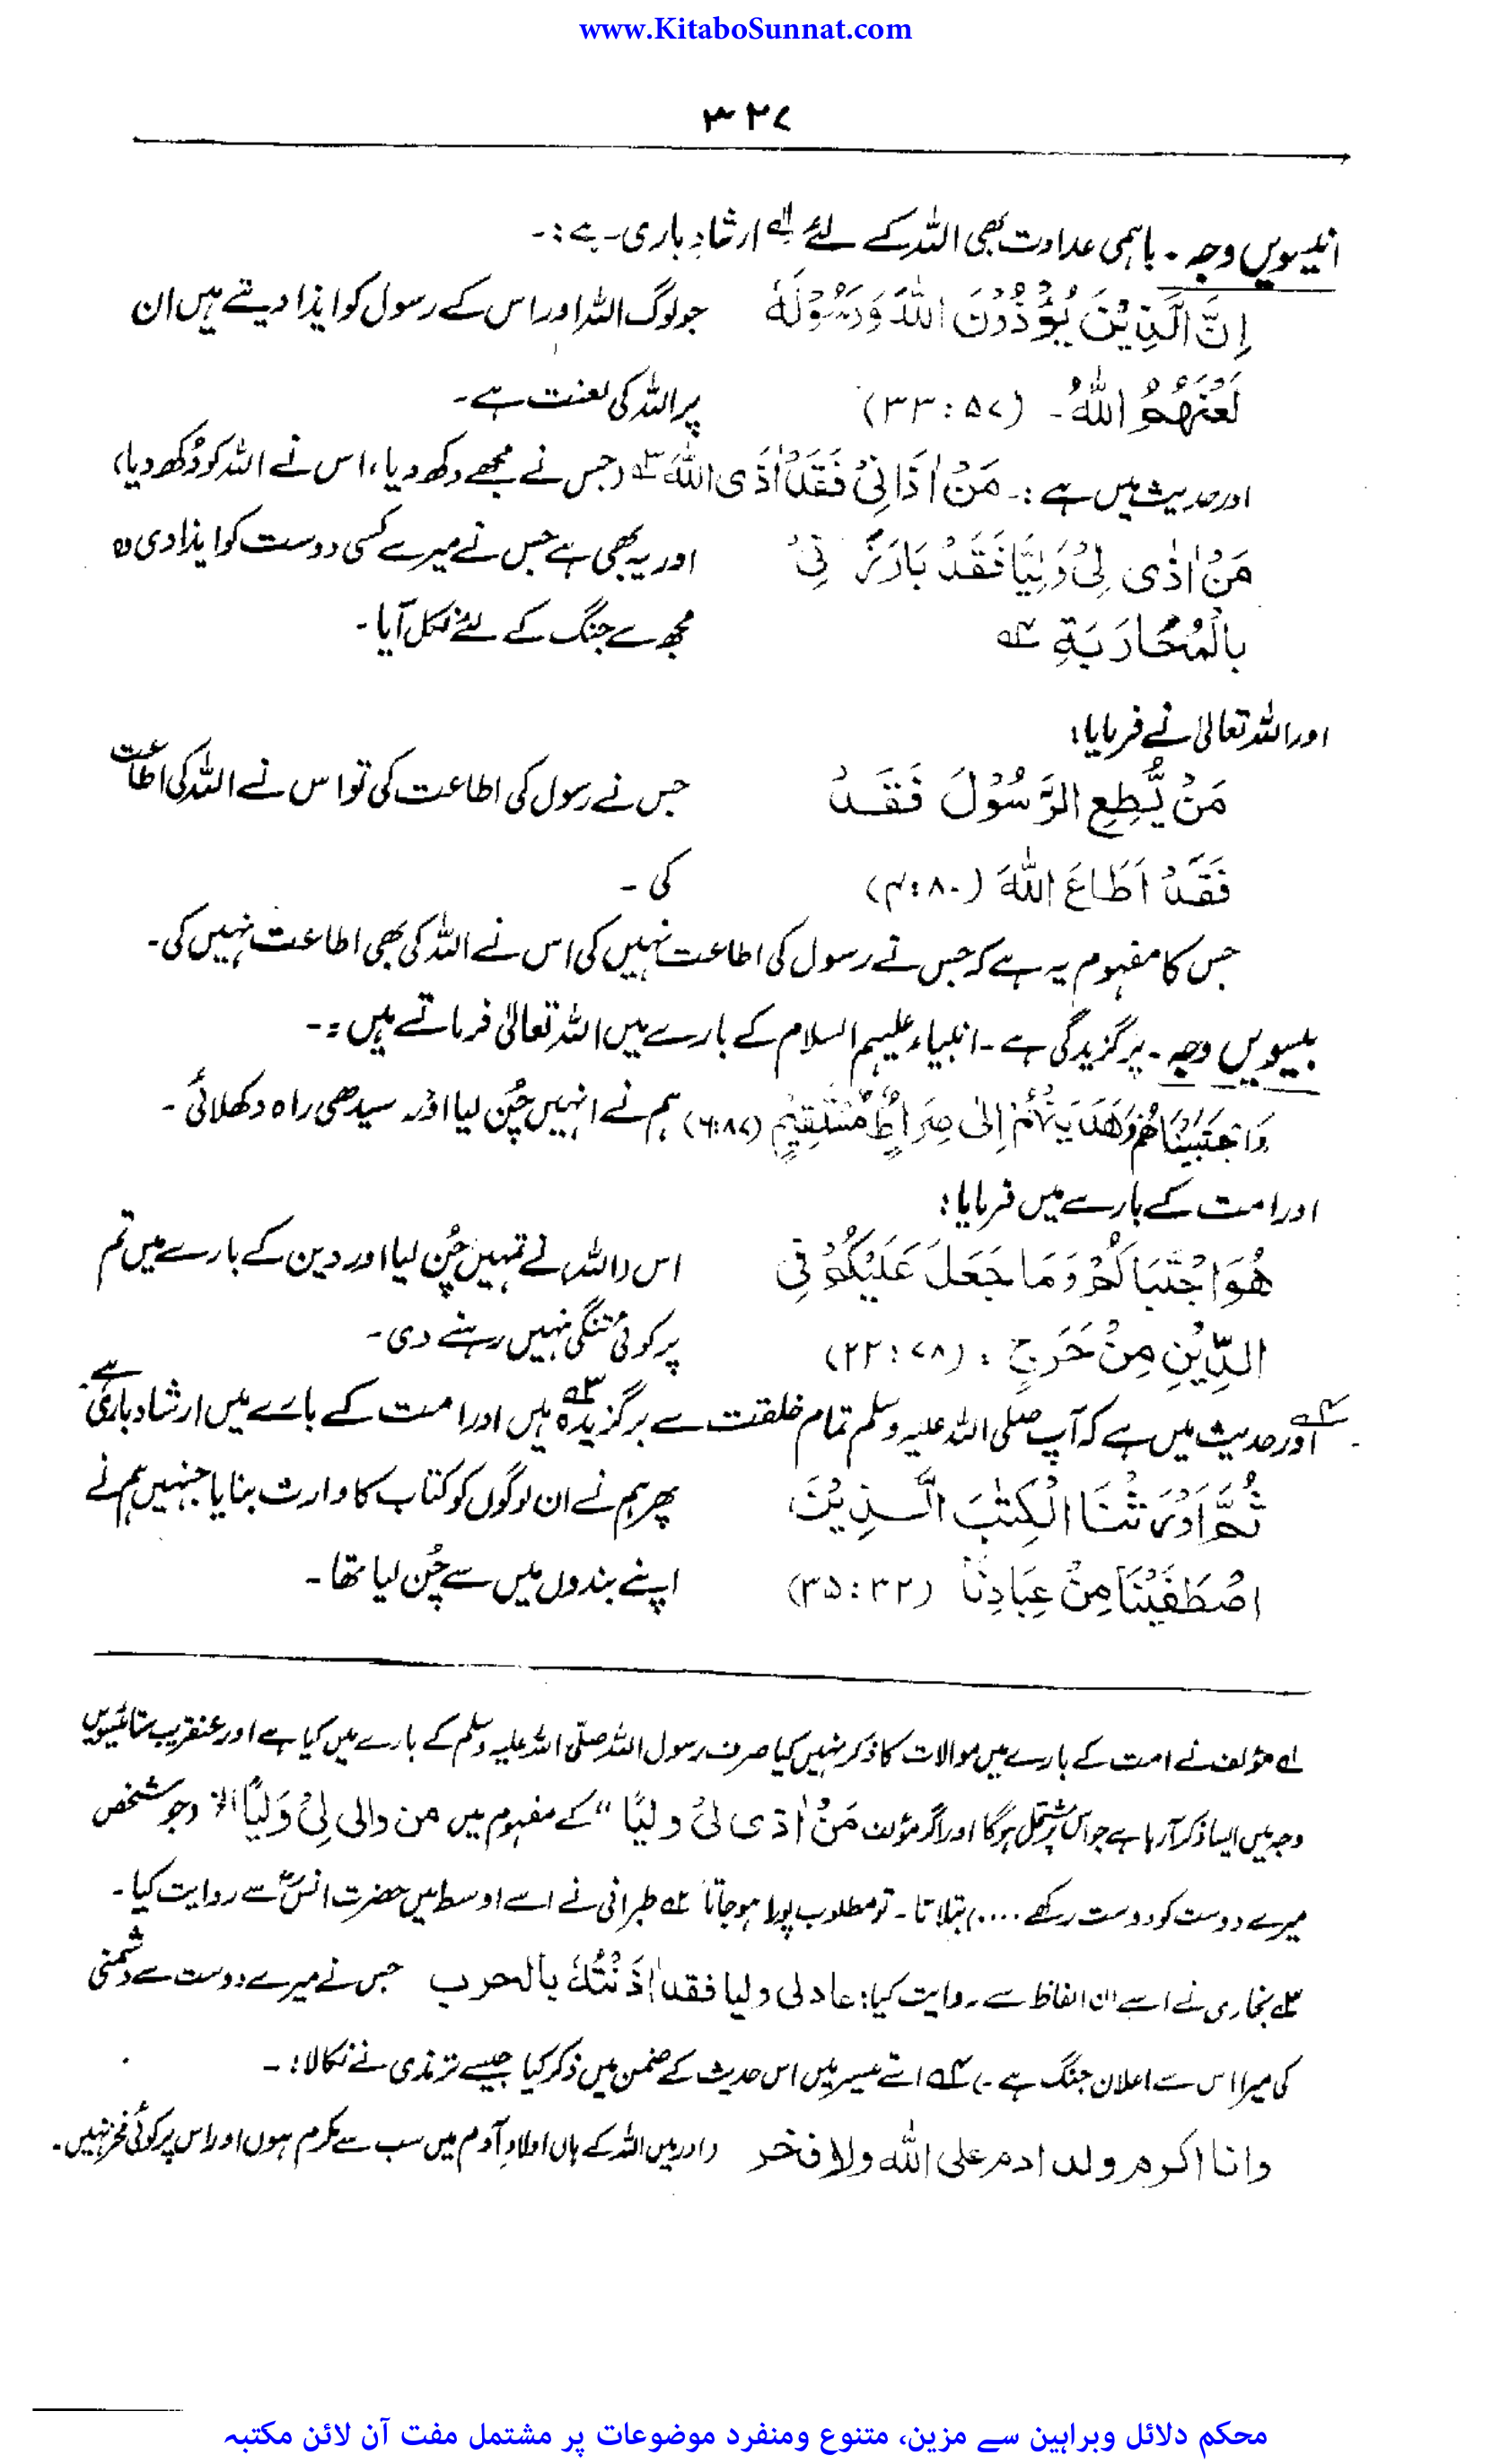 www.KitaboSunnat.com
۳۲۷
انیسویں وجہ ۔ باہمی عداوت بھی اللہ کے لئے لہ ارشادِ باری ہے :۔
اِنَّ الَّذِيْنَ يُؤْذُوْنَ اللّٰهَ وَرَسُوْلَهٗ جو لوگ اللہ اور اس کے رسول کو ایذا دیتے ہیں ان
لَعَنَهُمُ اللّٰهُ ۔ (۳۳:۵۷) پر اللہ کی لعنت ہے ۔
اور حدیث میں ہے :۔ مَنْ اٰذَانِيْ فَقَدْ اٰذَى اللّٰهَ ۲ے (جس نے مجھے دکھ دیا، اس نے اللہ کو دُکھ دیا)
مَنْ اٰذٰى لِيْ وَلِيًّا فَقَدْ بَارَزَ نِيْ اور یہ بھی ہے جس نے میرے کسی دوست کو ایذا دی وہ
بِالْمُحَارَبَةِ ۳ے مجھ سے جنگ کے لئے نکل آیا ۔
اور اللہ تعالیٰ نے فرمایا :
مَنْ يُّطِعِ الرَّسُوْلَ فَقَدْ جس نے رسول کی اطاعت کی تو اس نے اللہ کی اطاعت
فَقَدْ اَطَاعَ اللّٰهَ (۴:۸۰) کی ۔
جس کا مفہوم یہ ہے کہ جس نے رسول کی اطاعت نہیں کی اس نے اللہ کی بھی اطاعت نہیں کی ۔
بیسویں وجہ ۔ برگزیدگی ہے ۔ انبیاء علیہم السلام کے بارے میں اللہ تعالیٰ فرماتے ہیں :۔
وَاجْتَبَيْنَاهُمْ وَهَدَيْنٰهُمْ اِلٰى صِرَاطٍ مُّسْتَقِيْمٍ (۶:۸۷) ہم نے انہیں چُن لیا اور سیدھی راہ دکھلائی ۔
اور امت کے بارے میں فرمایا :
هُوَ اجْتَبَاكُمْ وَمَا جَعَلَ عَلَيْكُمْ فِي اس (اللہ) نے تمہیں چُن لیا اور دین کے بارے میں تم
الدِّيْنِ مِنْ حَرَجٍ ۔ (۲۲:۷۸) پر کوئی تنگی نہیں رہنے دی ۔
اور حدیث میں ہے کہ آپ صلی اللہ علیہ وسلم تمام خلقت سے برگزیدہ ہیں اور امت کے بارے میں ارشاد باری ہے
ثُمَّ اَوْرَثْنَا الْكِتٰبَ الَّذِيْنَ پھر ہم نے ان لوگوں کو کتاب کا وارث بنایا جنہیں ہم نے
اصْطَفَيْنَا مِنْ عِبَادِنَا (۳۵:۳۲) اپنے بندوں میں سے چُن لیا تھا ۔
لے مؤلف نے امت کے بارے میں موالات کا ذکر نہیں کیا صرف رسول اللہ صلی اللہ علیہ وسلم کے بارے میں کیا ہے اور عنقریب ستائیسویں
وجہ میں ایسا ذکر آ رہا ہے جو اس پر مشتمل ہوگا اور اگر مؤلف مَنْ اٰذى لِيْ وليًا “ کے مفہوم میں من والى لِيْ وَلِيًّا الا (جو شخص
میرے دوست کو دوست رکھے ....) بتلاتا ۔ تو مطلوب پورا ہو جاتا ۲ے طبرانی نے اسے اوسط میں حضرت انسؓ سے روایت کیا ۔
۳ے بخاری نے اسے ان الفاظ سے روایت کیا : عاد لى وليا فقد اٰذَنْتُهُ بالحرب جس نے میرے دوست سے دشمنی
کی میرا اس سے اعلان جنگ ہے ۔) ۴ے اسے میں اس حدیث کے ضمن میں ذکر کیا جسے ترمذی نے نکالا :۔
وانا اكرم ولد ادم على الله ولا فخر (اور میں اللہ کے ہاں اولادِ آدم میں سب سے مکرم ہوں اور اس پر کوئی فخر نہیں ۔
محکم دلائل وبراہین سے مزین، متنوع ومنفرد موضوعات پر مشتمل مفت آن لائن مکتبہ